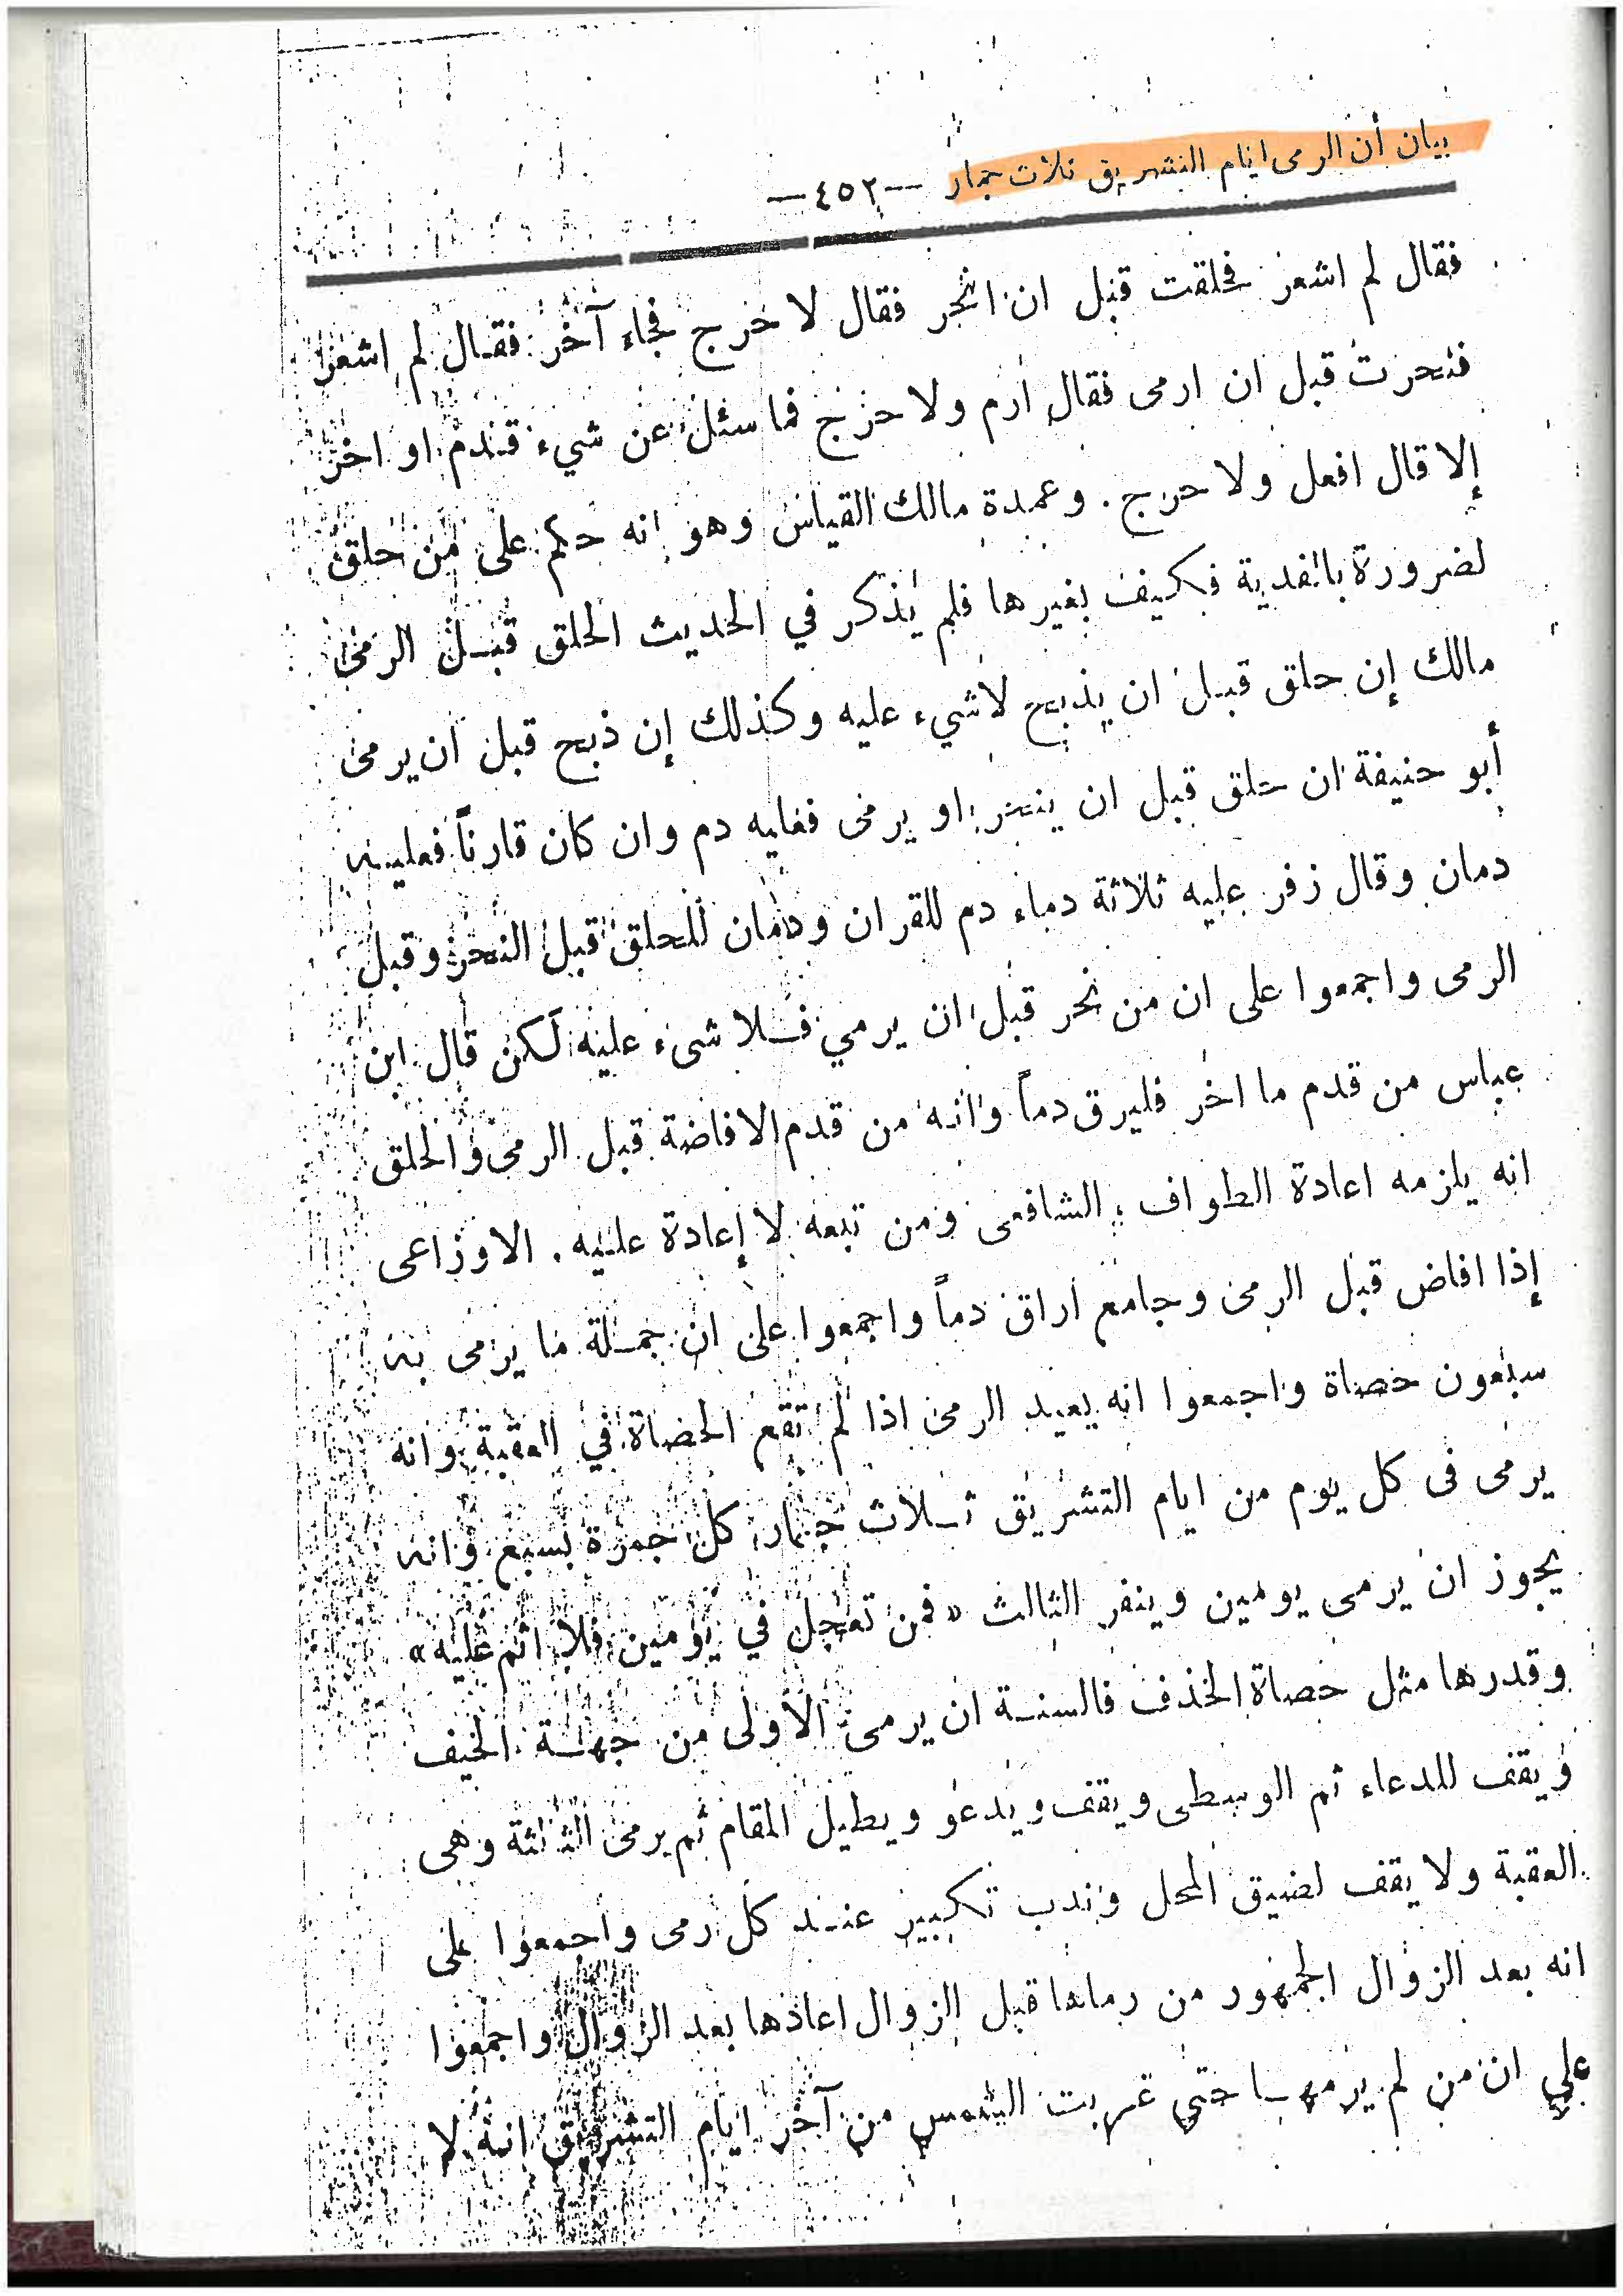 بيان أن الرمى ايام التشريق ثلاث جمار —٤٥٢—
فقال لم اشعر فحلقت قبل ان انحر فقال لا حرج فجاء آخر فقال لم اشعر
فنحرت قبل ان ارمى فقال ارم ولا حرج فما سئل عن شيء قدم او اخر
إلا قال افعل ولا حرج . وعمدة مالك القياس وهو انه حكم على من حلق
لضرورة بالفدية فكيف بغيرها فلم يذكر في الحديث الحلق قبل الرمى
مالك إن حلق قبل ان يذبح لاشيء عليه وكذلك إن ذبح قبل ان يرمى
أبو حنيفة ان حلق قبل ان ينحر او يرمى فعليه دم وان كان قارناً فعليه
دمان وقال زفر عليه ثلاثة دماء دم للقران ودمان للحلق قبل النحر وقبل
الرمى واجمعوا على ان من نحر قبل ان يرمي فلا شىء عليه لكن قال ابن
عباس من قدم ما اخر فليرق دماً وانه من قدم الافاضة قبل الرمى والحلق
انه يلزمه اعادة الطواف ؛ الشافعى ومن تبعه لا إعادة عليه . الاوزاعى
إذا افاض قبل الرمى وجامع اراق دماً واجمعوا على ان جملة ما يرمى به
سبعون حصاة واجمعوا انه يعيد الرمى اذا لم تقع الحصاة في العقبة وانه
يرمى فى كل يوم من ايام التشريق ثلاث جمار كل جمرة بسبع وانه
يجوز ان يرمى يومين وينفر الثالث «فمن تعجل في يومين فلا اثم عليه»
وقدرها مثل حصاة الخذف فالسنة ان يرمى الأولى من جهة الخيف
ويقف للدعاء ثم الوسطى ويقف ويدعو ويطيل المقام ثم يرمى الثالثة وهى
العقبة ولا يقف لضيق المحل وندب تكبير عند كل رمى واجمعوا على
انه بعد الزوال الجمهور من رماها قبل الزوال اعادها بعد الزوال واجمعوا
على ان من لم يرمها حتى غربت الشمس من آخر ايام التشريق انه لا